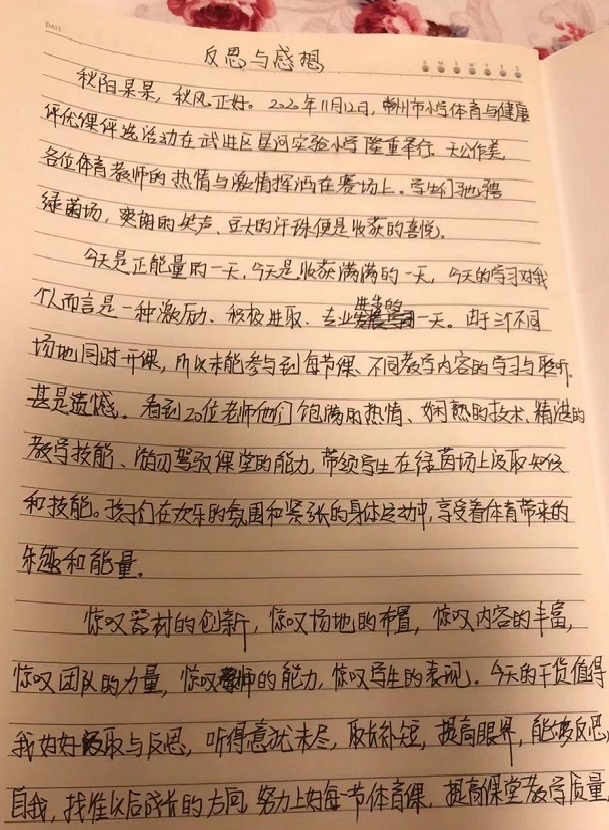 DATE
反思与感想
S M T W T F S
秋阳杲杲，秋风正好。2020年11月12日，常州市小学体育与健康
评优课评选活动在武进区星河实验小学隆重举行。天公作美，
各位体育教师的热情与激情挥洒在赛场上。学生们驰骋
绿茵场，爽朗的笑声、豆大的汗珠便是收获的喜悦。
今天是正能量的一天，今天是收获满满的一天，今天的学习对我
个人而言是一种激励、积极进取、专业进步的一天。由于三个不同
场地同时开课，所以未能参与到每节课、不同教学内容的学习与聆听，
甚是遗憾。看到20位老师他们饱满的热情、娴熟的技术、精湛的
教学技能、游刃驾驭课堂的能力，带领学生在绿茵场上汲取知识
和技能。孩子们在欢乐的氛围和紧张的身体运动中，享受着体育带来的
乐趣和能量。
惊叹器材的创新，惊叹场地的布置，惊叹内容的丰富，
惊叹团队的力量，惊叹教师的能力，惊叹学生的表现。今天的干货值得
我好好吸取与反思，听得意犹未尽，取长补短，提高眼界，能够反思
自我，找准以后成长的方向，努力上好每一节体育课，提高课堂教学质量，